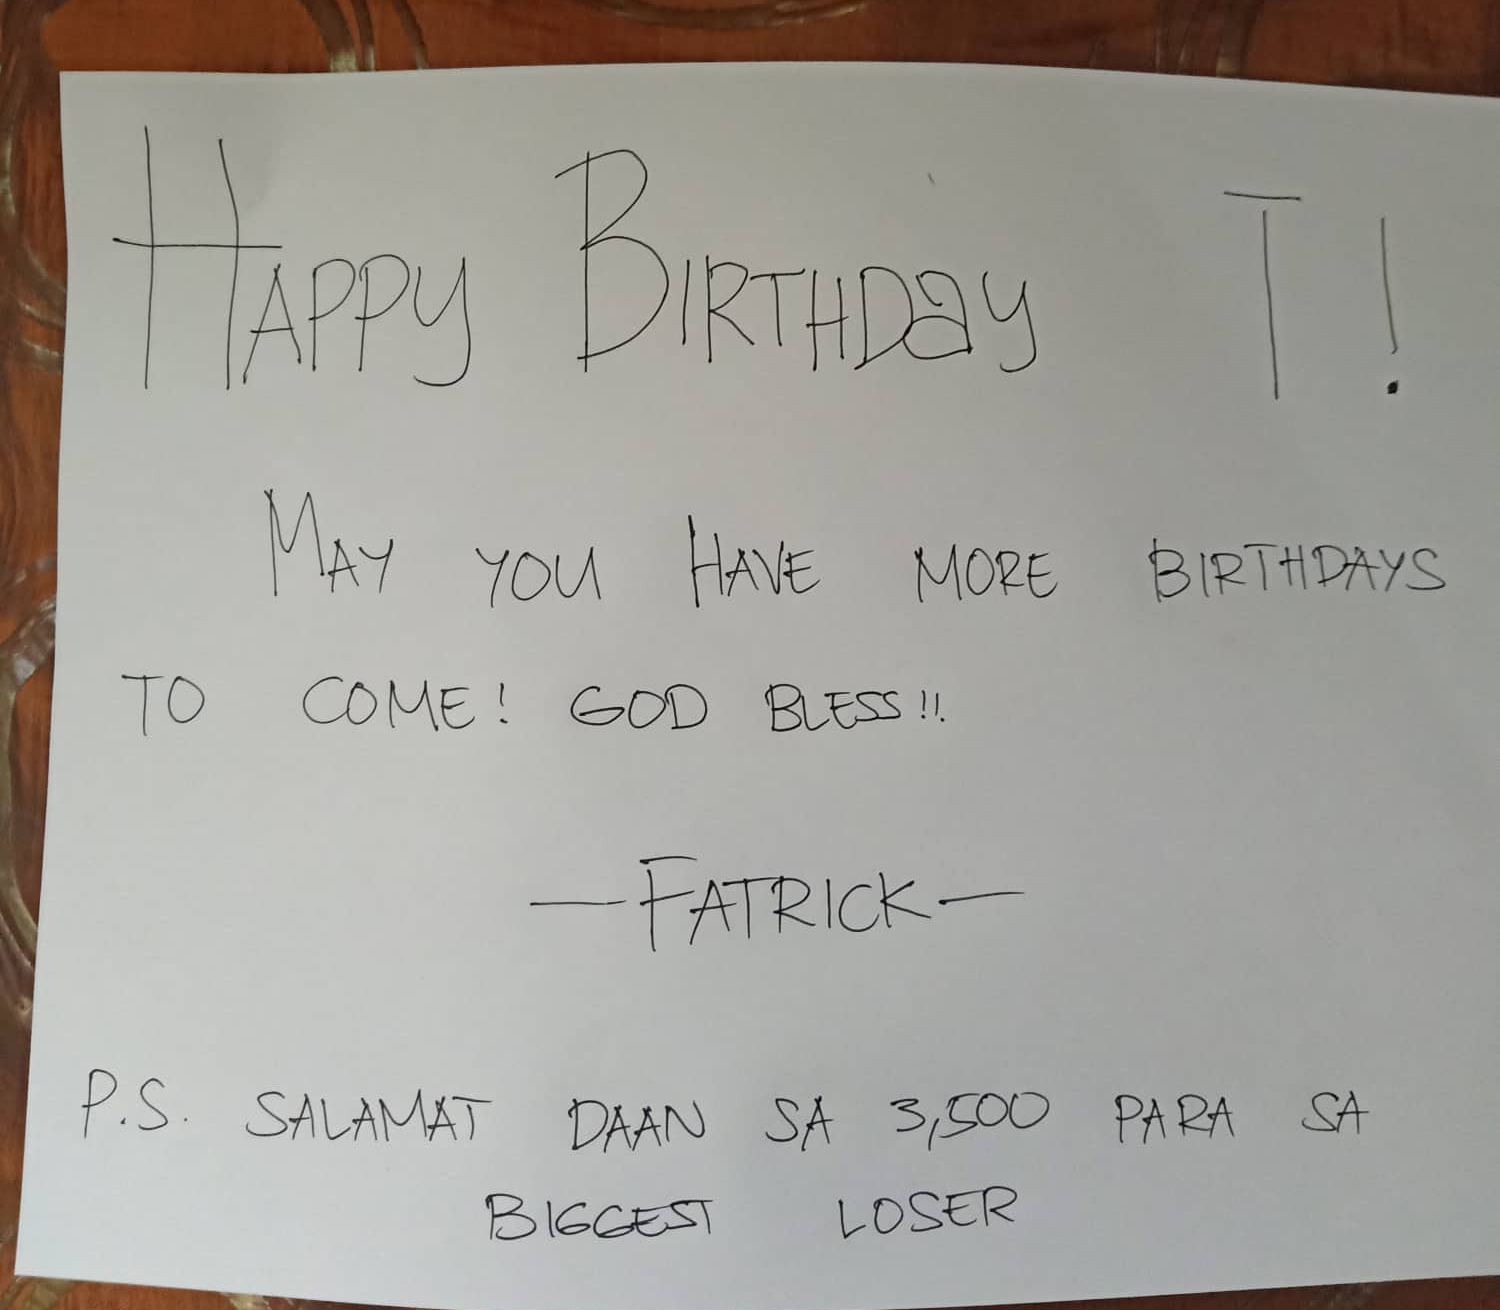 HAPPY BIRTHDAY T!
MAY YOU HAVE MORE BIRTHDAYS
TO COME! GOD BLESS!!!
—FATRICK—
P.S. SALAMAT DAAN SA 3,500 PARA SA
BIGGEST LOSER